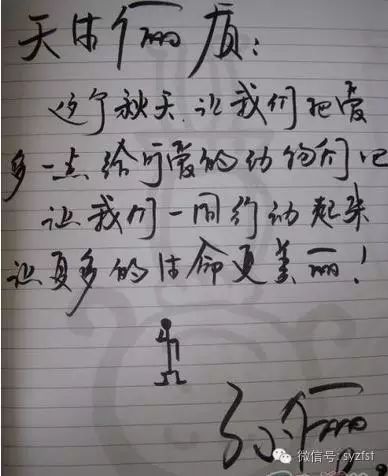 天生俪质：
这个秋天让我们把爱
多一点给可爱的动物们吧
让我们一同行动起来
让更多的生命更美丽！
孙俪
微信号: syzfst